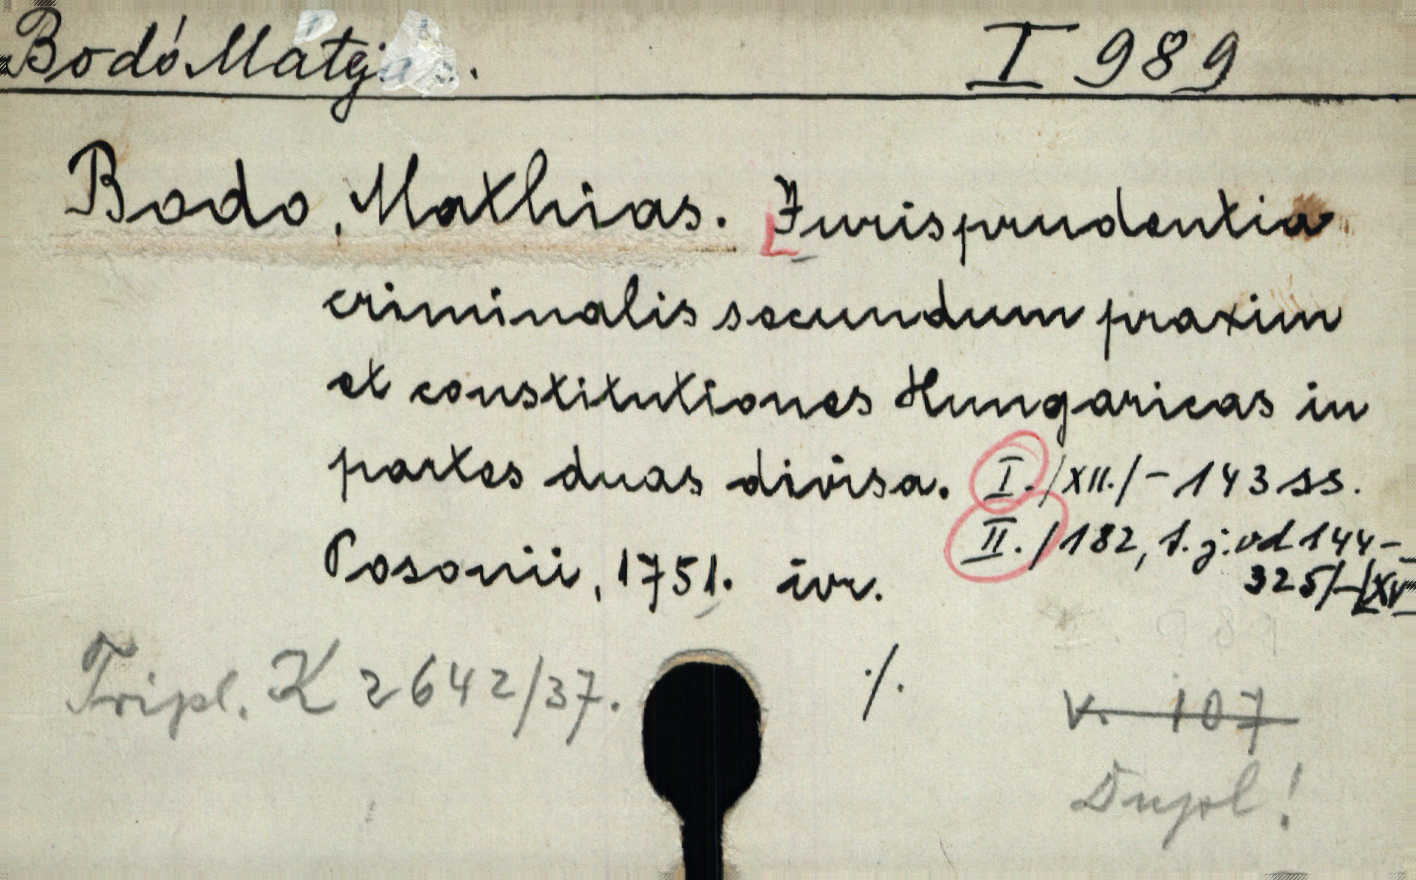 Bodó Matej I 989
Bodo, Mathias. Jurisprudentia
criminalis secundum praxim
et constitutiones Hungaricas in
partes duas divisa. I./XII./-143 ss.
II./182, t.j. od 144-
325/-/XV
Posonii, 1751. ivr.
Tripl. K 2642/37. ./.
V. 107
Dupl!